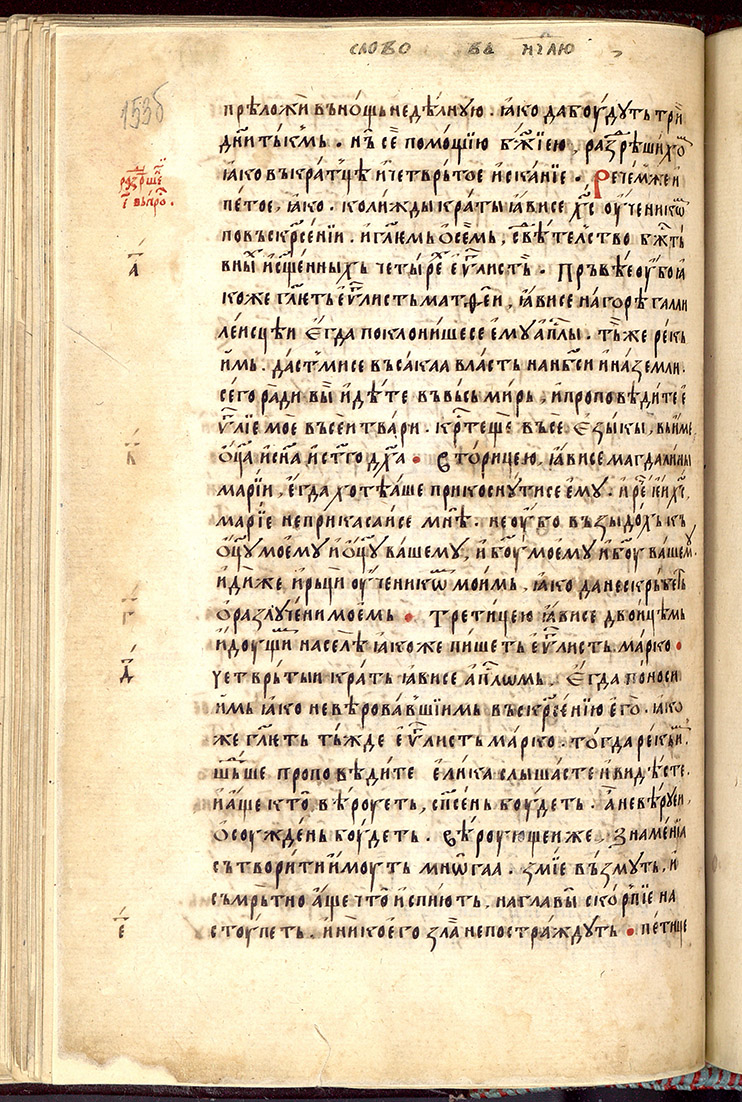 слово въ н҃лю
153б
прѣложи въ нощь недѣлную. ꙗко да боудуть три
дни ти къмь. нь се помощїю бж҃їею, разрѣшихѡ
ꙗко въкратцѣ и четврьтое исканїе. Речем же и
разрше
є҃ въпро.
петое, ꙗко. колижды краты ꙗви се хс҃ оученикѡ
по въскрсенїи. и гл҃емь осемь, свѣтелство бжтъ
вны и сщ҃енныхь четыре еѵⷢ҇листь. Прьвѣе оубо ꙗ
а҃
коже гл҃еть еѵⷢ҇листь матѳеи, ꙗви се на горѣ галли
леисцѣи егда поклонише се ему апⷭ҇лы. тѣмже рекь
имь. даст ми се въсакаа власть на нб҃си и на земли.
сего ради вы идѣте въ вьсь мирь, и проповѣдите е
ѵⷢ҇лїе мое въсеи твари. крⷭ҇теще въсе езыкы, въ име
оц҃а и сн҃а и ст҃го дх҃а. Вторицею, ꙗви се магдалины
в҃
марїи, егда хотѣаше прикоснути се ему. и рече к них,
марїе не прикасаи се мнѣ. не оубо възыдохъ къ
оц҃у моему и оц҃у вашему, и бг҃у моему и бг҃у вашему.
иди же и рьци оученикѡм моимь, ꙗко да не скрьбеть
о разлучени моемь. Третицею ꙗви се двоицѣмь
г҃
идоущи на селѣ ꙗкоже пишеть еѵⷢ҇листь марко.
четврьтыи крать ꙗви се апⷭ҇лѡмь. Егда поноси
д҃
имь ꙗко не вѣровавшїимь въскрсенїю его. ꙗко
же гл҃еть тьжде еѵⷢ҇листь марко. тогда рек им.
шьдше проповѣдите елика слышасте и видѣсте.
и аще кто вѣроуеть, спⷭ҇сень боудеть. а не вѣруеи,
осоуждень боудеть. вѣроующеи же знаменїа
сътворити имоуть мнѡгаа. змїе възмуть, и
съмрьтно аще что испиють, на главы скорпїе на
стоупеть. и никоего зла не постраждуть. петице
е҃